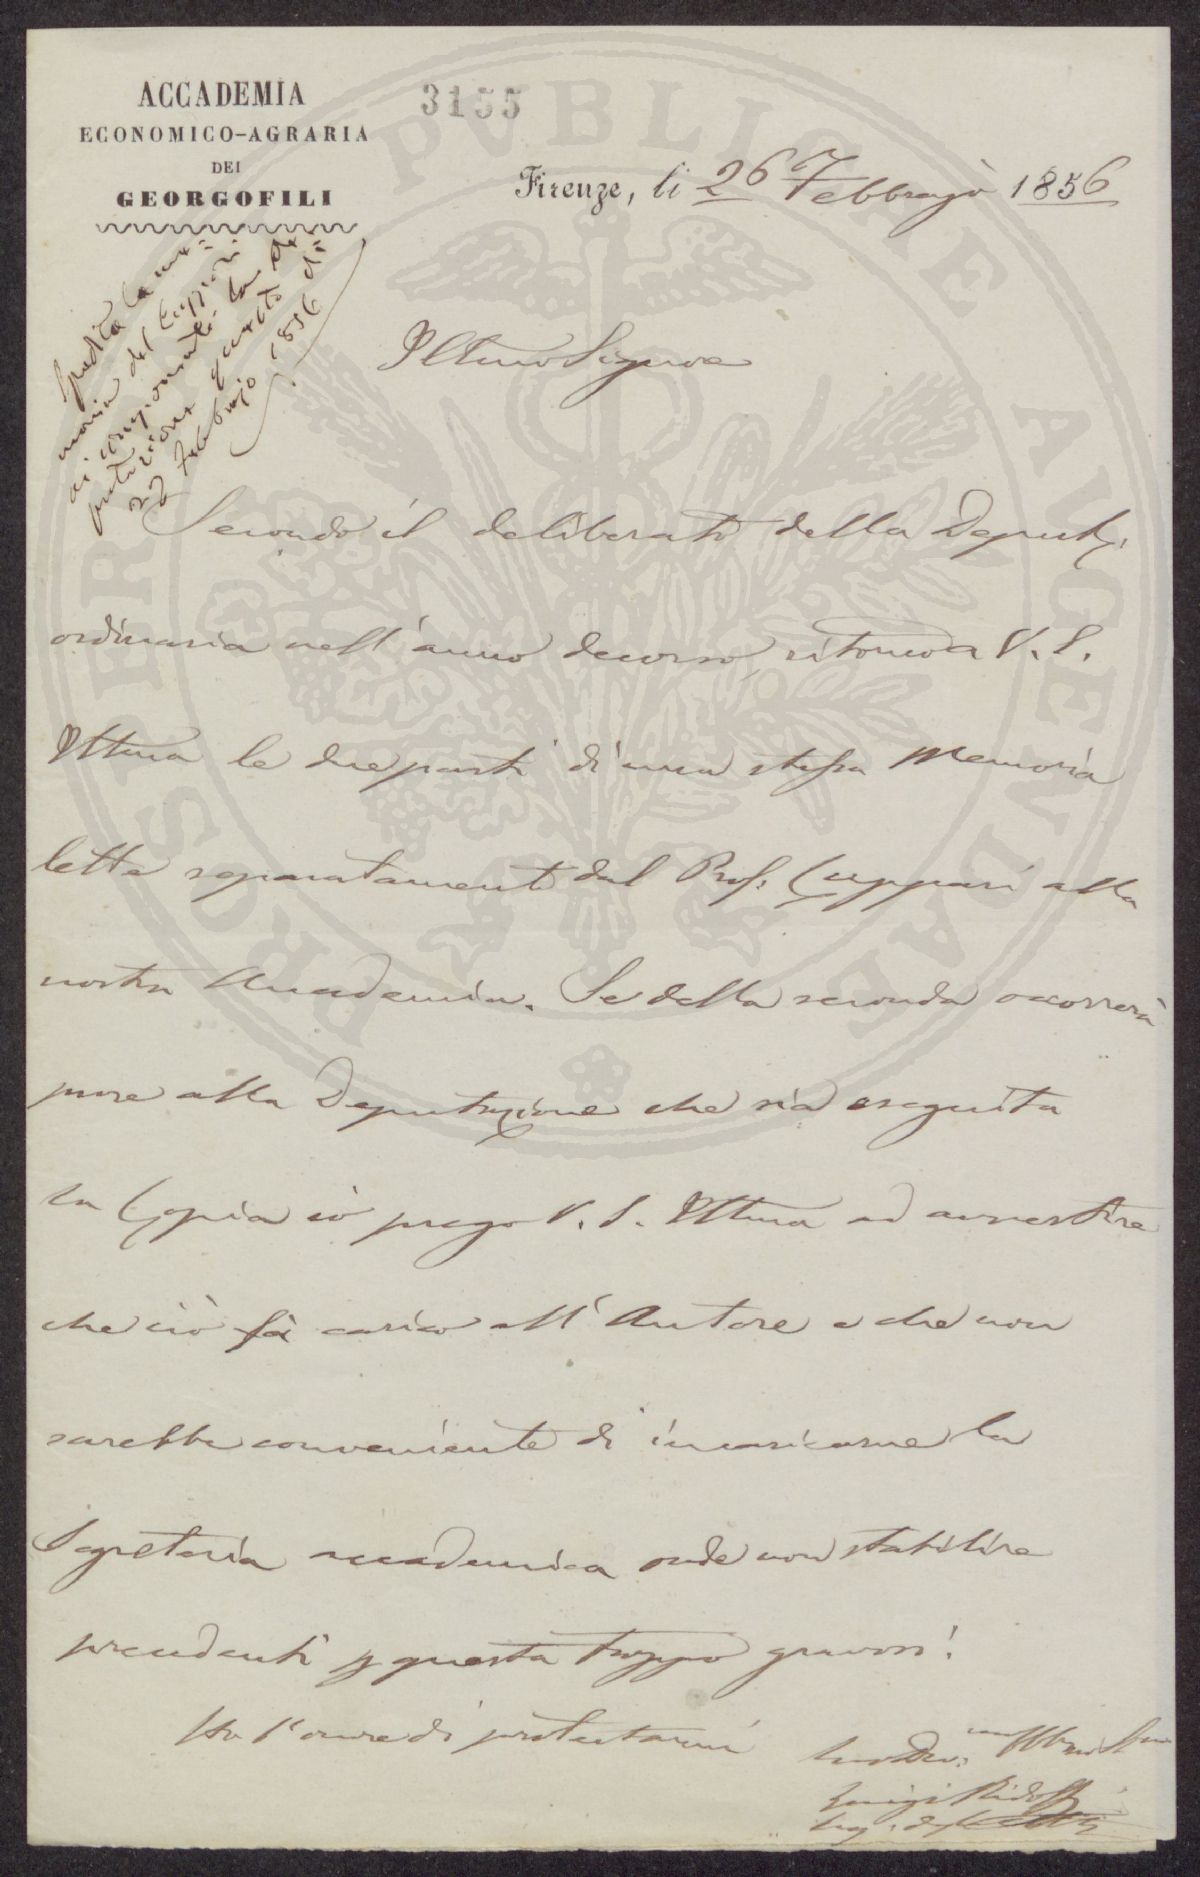 ACCADEMIA
ECONOMICO-AGRARIA
DEI
GEORGOFILI
3155
Firenze, li 26 Febbrajo 1856
Spedita la me=
moria del Cuppari
ai componenti la De=
putazione questo dì
27 Febbrajo 1856
Illmo Signore
Secondo il deliberato della Deputz.
ordinaria nell'anno decorso, ritorno a V. S.
Illma le due parti di una stessa Memoria
letta separatamente dal Prof. Cuppari alla
nostra Accademia. Se della seconda occorrerà
pure alla Deputazione che sia eseguita
la Copia io prego V. S. Illma ad avvertire
che ciò fà carico all'Autore e che non
sarebbe conveniente di incaricarne la
Segreteria accademica onde non stabilire
precedenti p questa troppo gravosi.
Ho l'onore di protestarmi
Luigi Ridolfi
PROSPERITATI PVBLICAE AVGENDAE